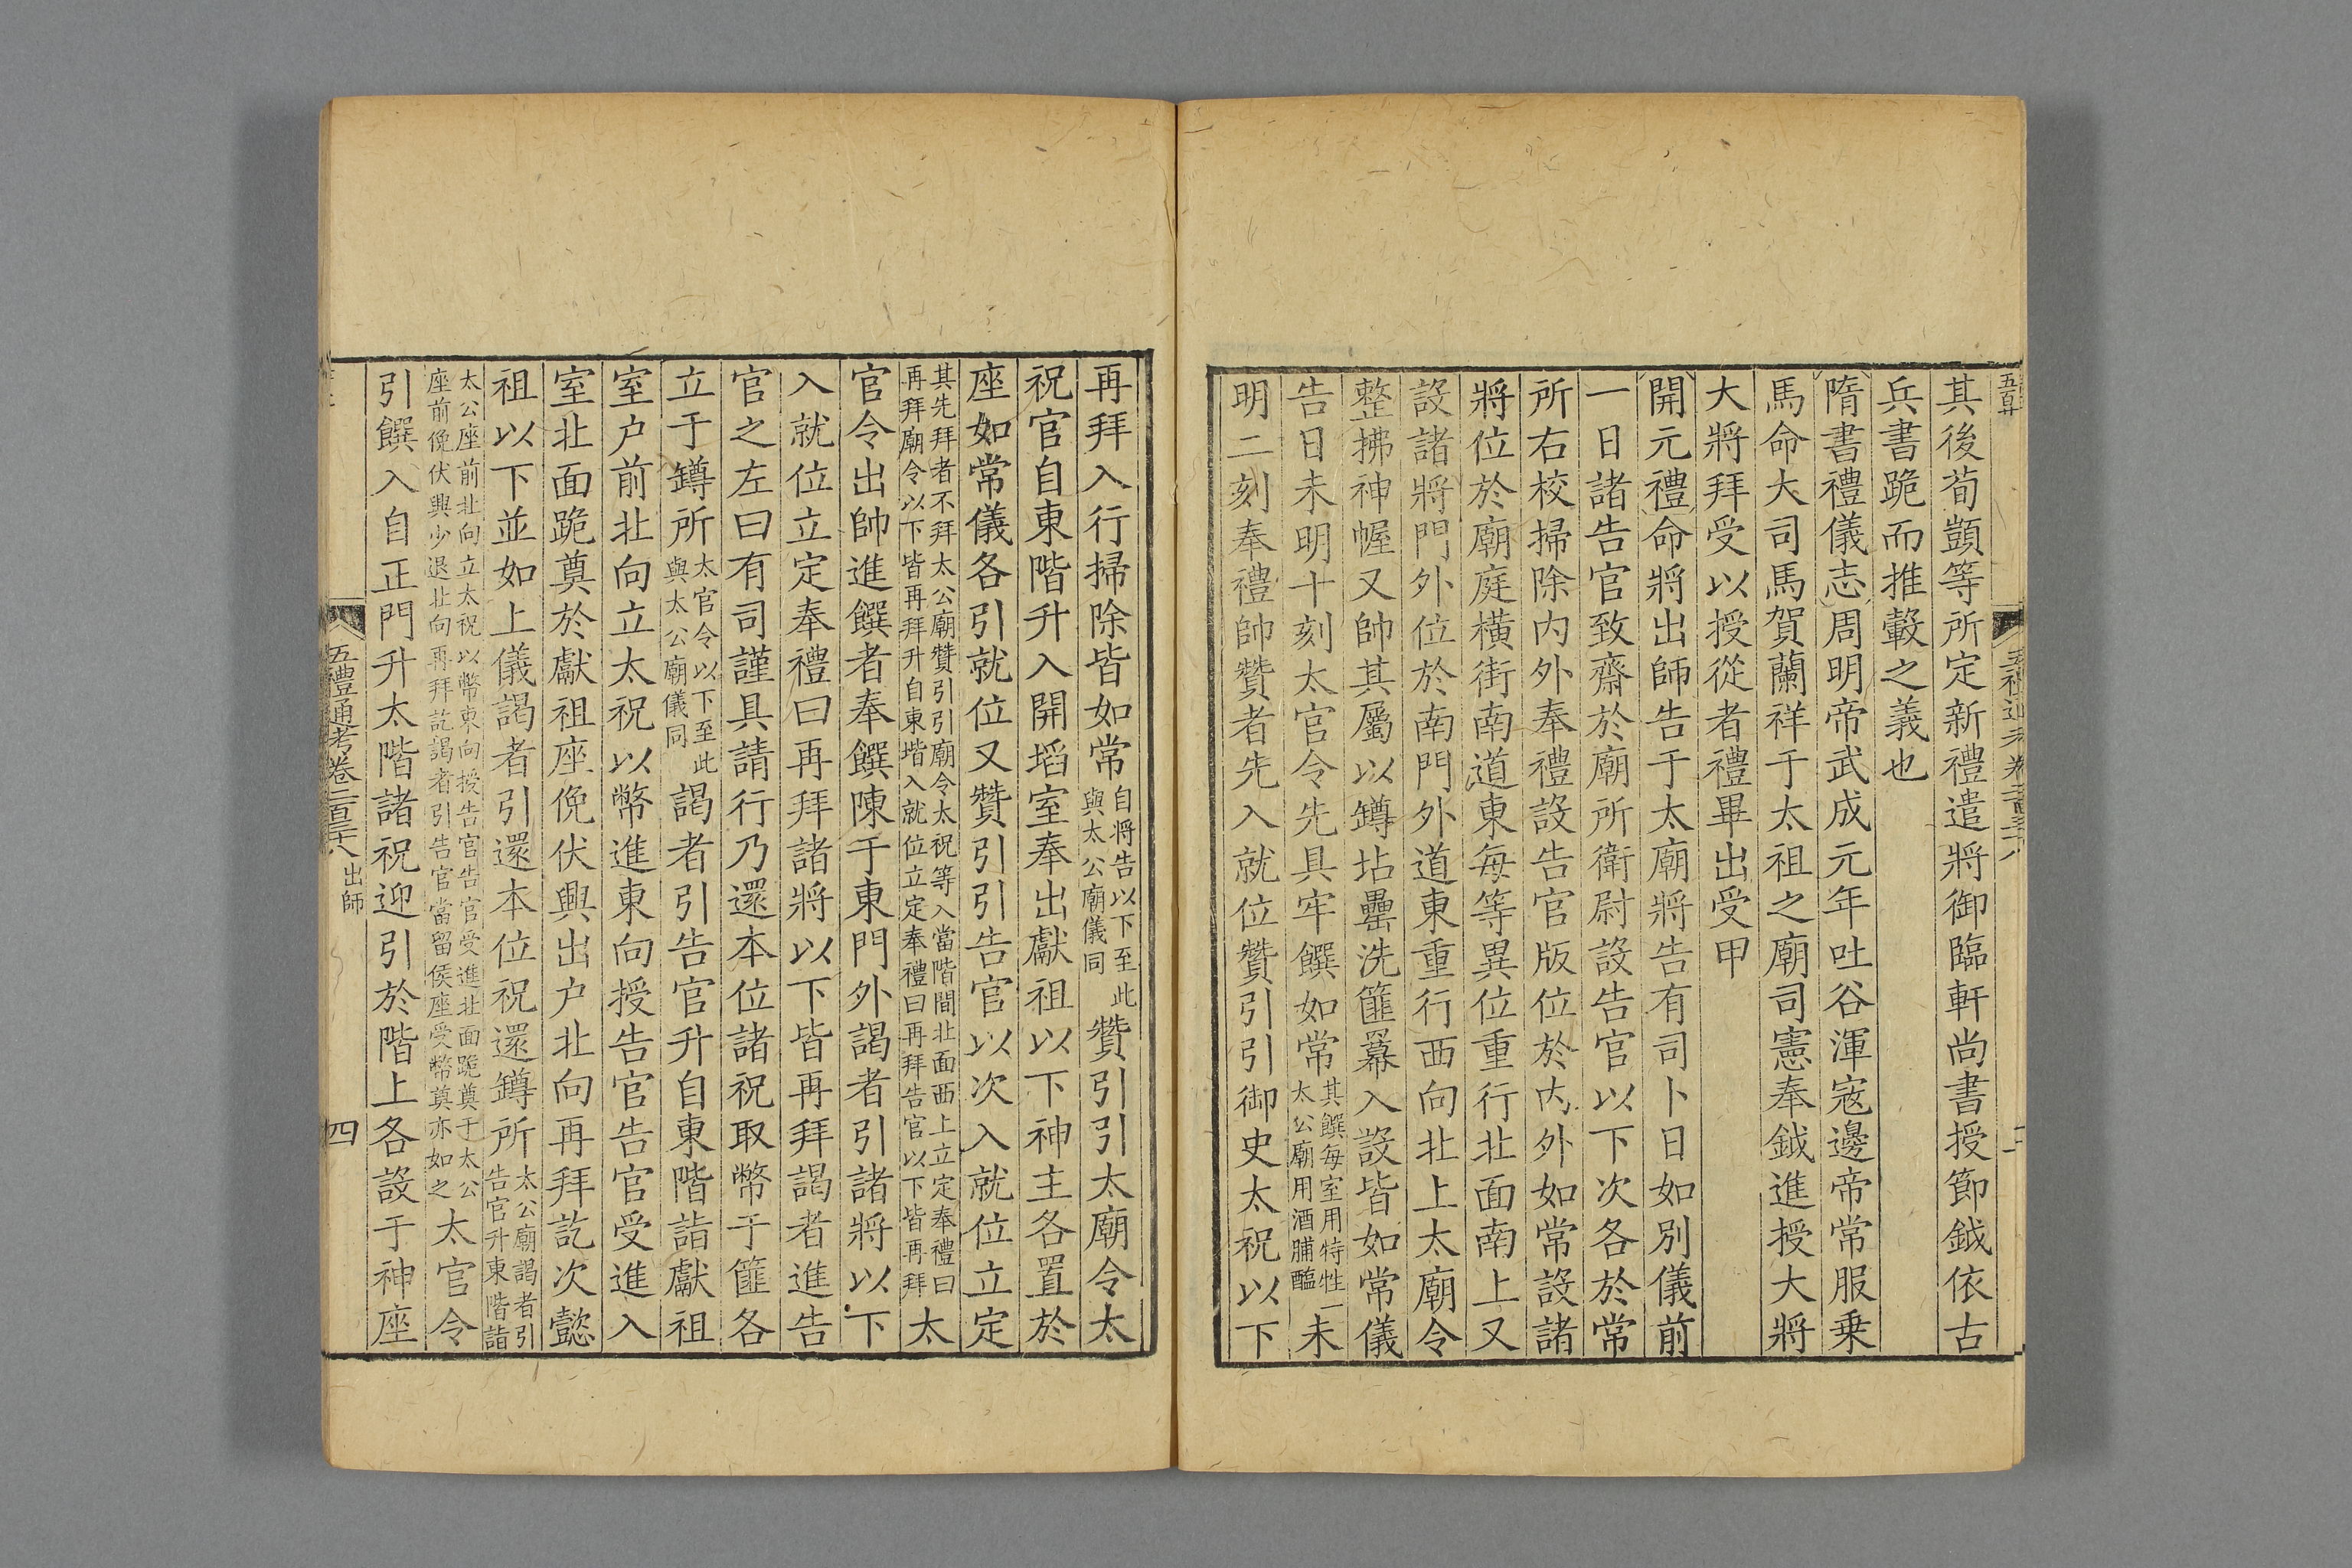 其後荀顗等所定新禮遣將御臨軒尚書授節鉞依古
兵書跪而推轂之義也
隋書禮儀志周明帝武成元年吐谷渾寇邊帝常服乗
馬命大司馬賀蘭祥于太祖之廟司憲奉鉞進授大將
大將拜受以授從者禮畢出受甲
開元禮命將出師告于太廟將告有司卜日如別儀前
一日諸告官致齋於廟所衛尉設告官以下次各於常
所右校掃除内外奉禮設告官版位於内外如常設諸
將位於廟庭橫街南道東每等異位重行北面南上又
設諸將門外位於南門外道東重行西向北上太廟令
整拂神幄又帥其屬以罇坫罍洗篚羃入設皆如常儀
告日未明十刻太官令先具牢饌如常其饌每室用特牲一太公廟用酒脯醢未
明二刻奉禮帥贊者先入就位贊引引御史太祝以下
再拜入行掃除皆如常自將告以下至此與太公廟儀同贊引引太廟令太
祝官自東階升入開埳室奉出獻祖以下神主各置於
座如常儀各引就位又贊引引告官以次入就位立定
其先拜者不拜太公廟贊引引廟令太祝等入當階間北面西上立定奉禮曰
再拜廟令以下皆再拜升自東堦入就位立定奉禮曰再拜告官以下皆再拜太
官令出帥進饌者奉饌陳于東門外謁者引諸將以下
入就位立定奉禮曰再拜諸將以下皆再拜謁者進告
官之左曰有司謹具請行乃還本位諸祝取幣于篚各
立于罇所太官令以下至此與太公廟儀同謁者引告官升自東階詣獻祖
室户前北向立太祝以幣進東向授告官告官受進入
室北面跪奠於獻祖座俛伏興出户北向再拜訖次懿
祖以下並如上儀謁者引還本位祝還罇所太公廟謁者引告官升東階詣
太公座前北向立太祝以幣東向授告官告官受進北面跪奠于太公
座前俛伏興少退北向再拜訖謁者引告官當留侯座受幣奠亦如之太官令
引饌入自正門升太階諸祝迎引於階上各設于神座
五禮通考卷二百三十八 出師
四